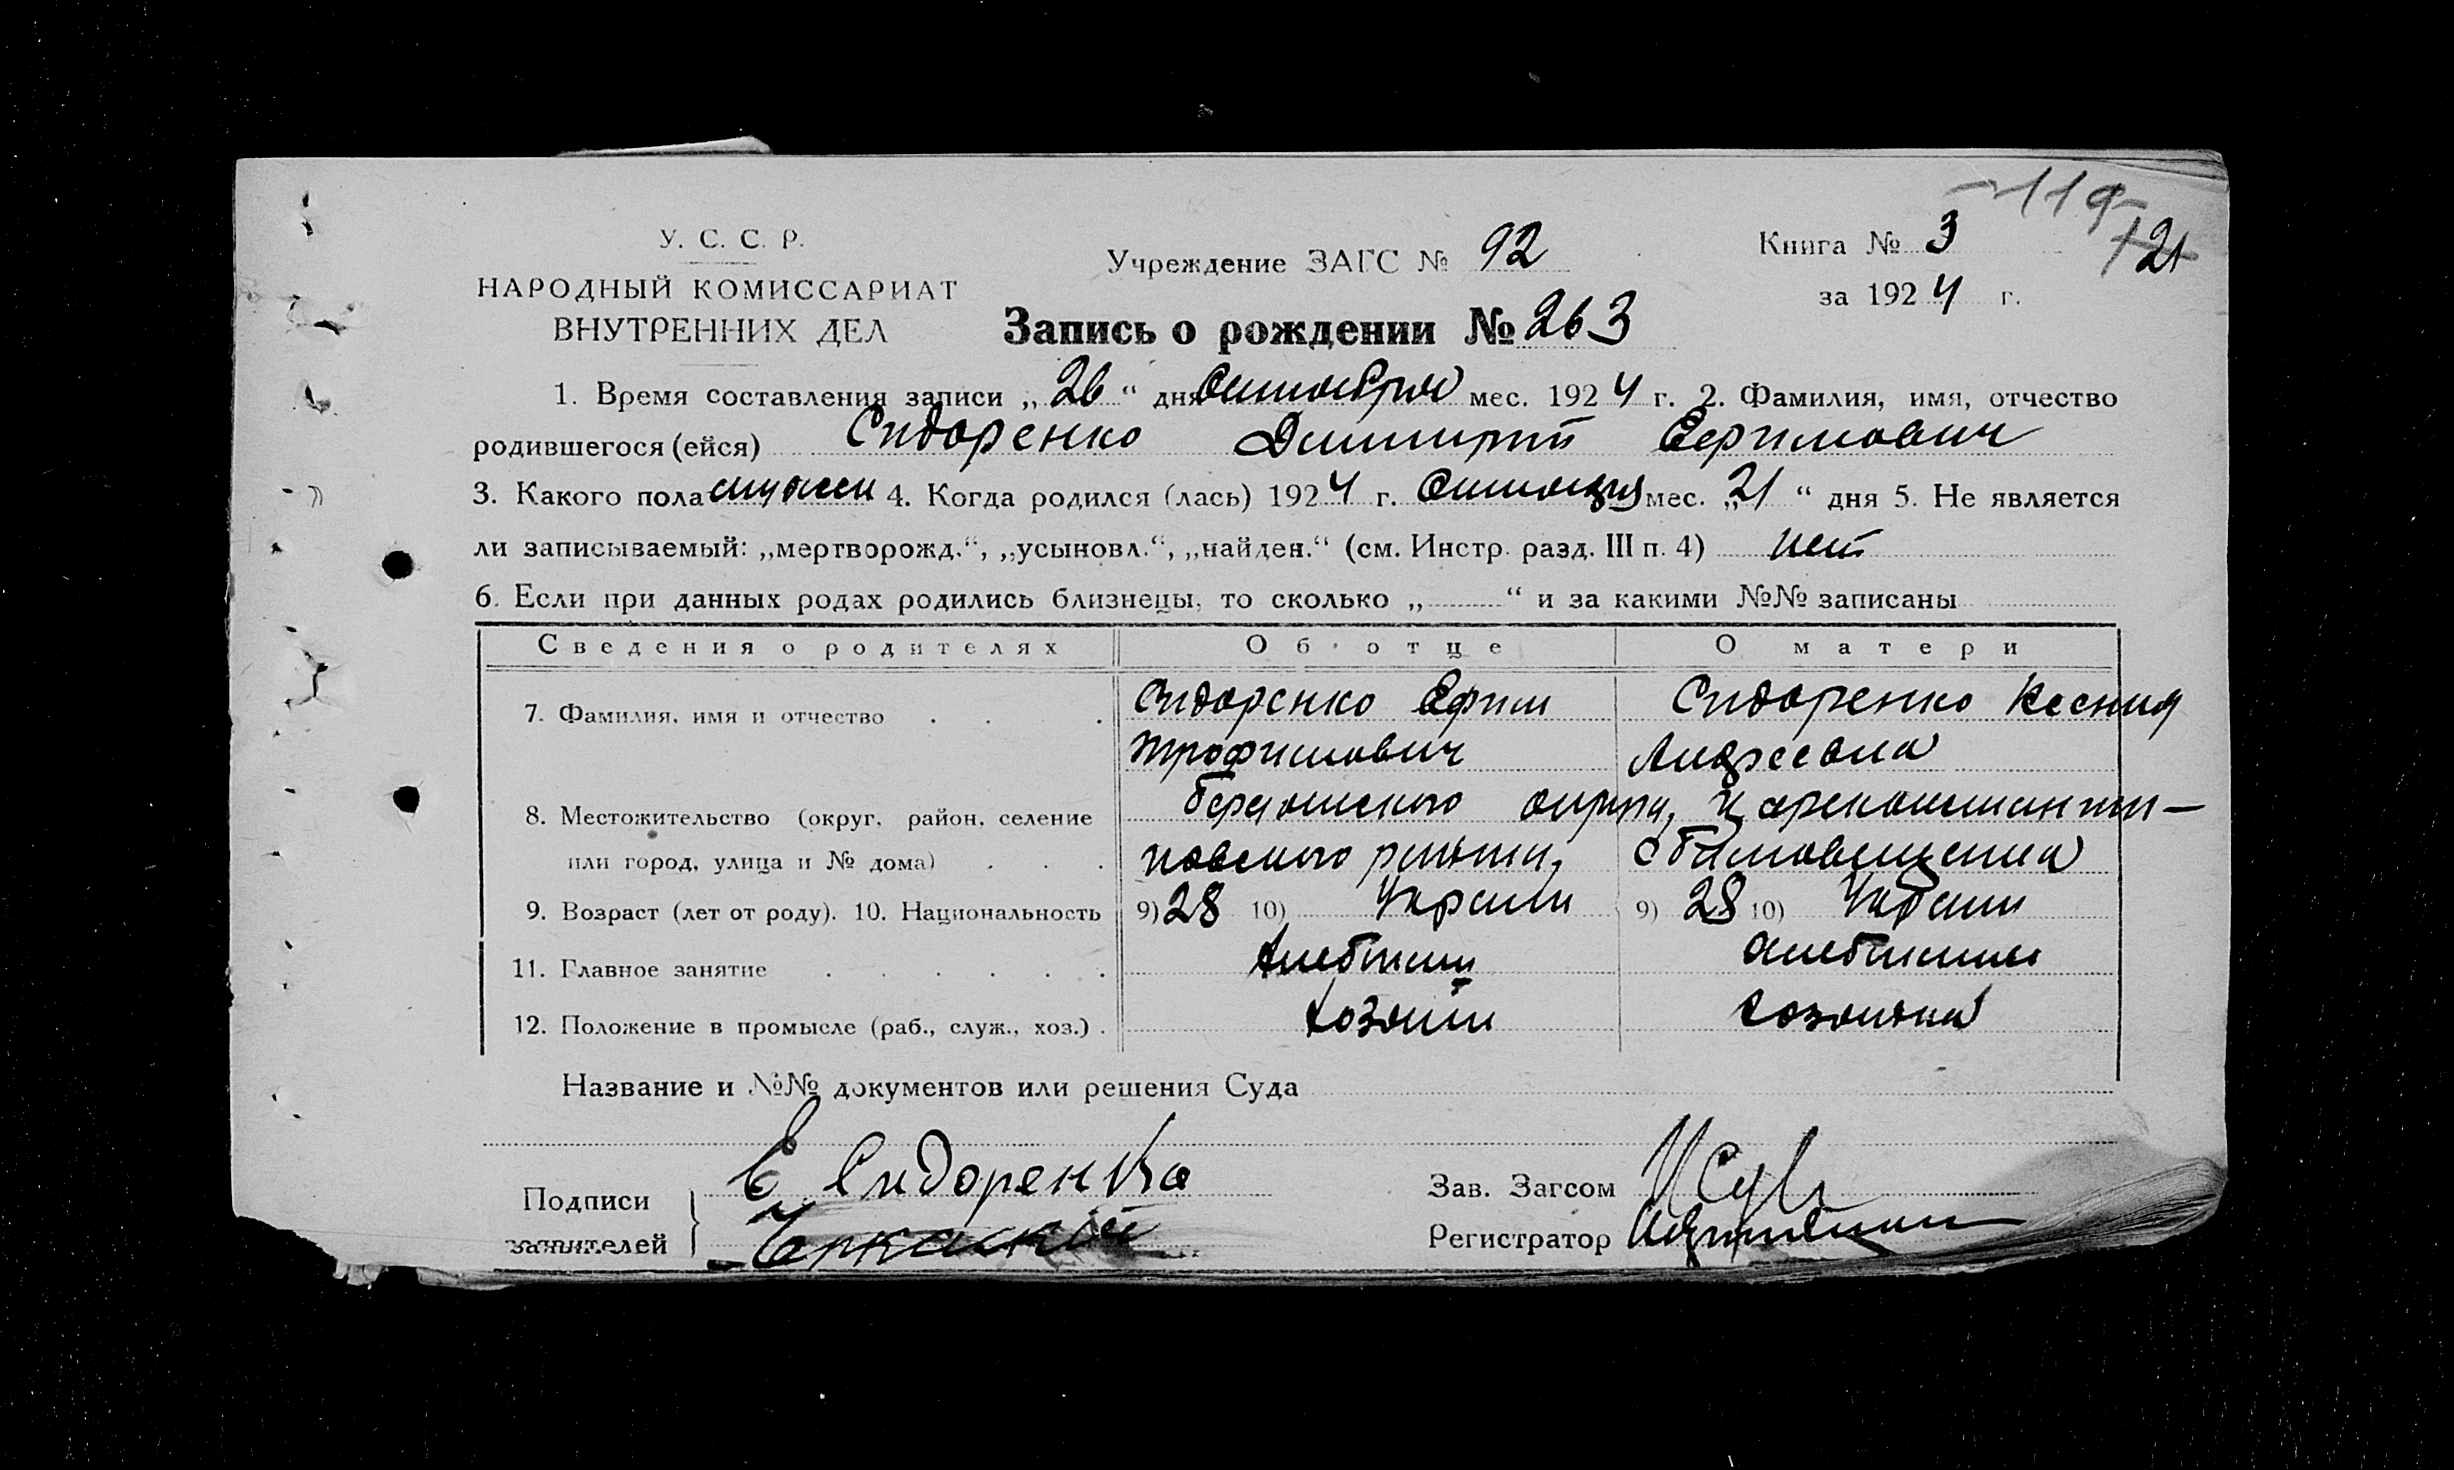 -119-
121
У. С. С. Р.
НАРОДНЫЙ КОМИССАРИАТ
ВНУТРЕННИХ ДЕЛ
Учреждение ЗАГС № 92
Книга № 3
за 1924 г.
Запись о рождении № 263
1. Время составления записи „26“ дня Октября мес. 1924 г. 2. Фамилия, имя, отчество
родившегося (ейся) Сидоренко Димитрий Ефимович
3. Какого пола мужск 4. Когда родился (лась) 1924 г. мес. „21“ дня 5. Не является
ли записываемый: „мертворожд.“, „усыновл.“, „найден.“ (см. Инстр. разд. III п. 4) нет
6. Если при данных родах родились близнецы, то сколько „ “ и за какими №№ записаны
Сведения о родителях Об отце О матери
7. Фамилия, имя и отчество Сидоренко Ефим Сидоренко Ксения
Трофимович Андреевна
8. Местожительство (округ, район, селение Бердянского округа, Цареконстанти-
или город, улица и № дома) новского района, с Благовещенка
9. Возраст (лет от роду). 10. Национальность 9) 28 10) Украин 9) 28 10) Украин
11. Главное занятие хлебопаш хлебопаш
12. Положение в промысле (раб., служ., хоз.) хозяин хозяйка
Название и №№ документов или решения Суда
Подписи заявителей Е Сидоренко
Зав. Загсом
Регистратор